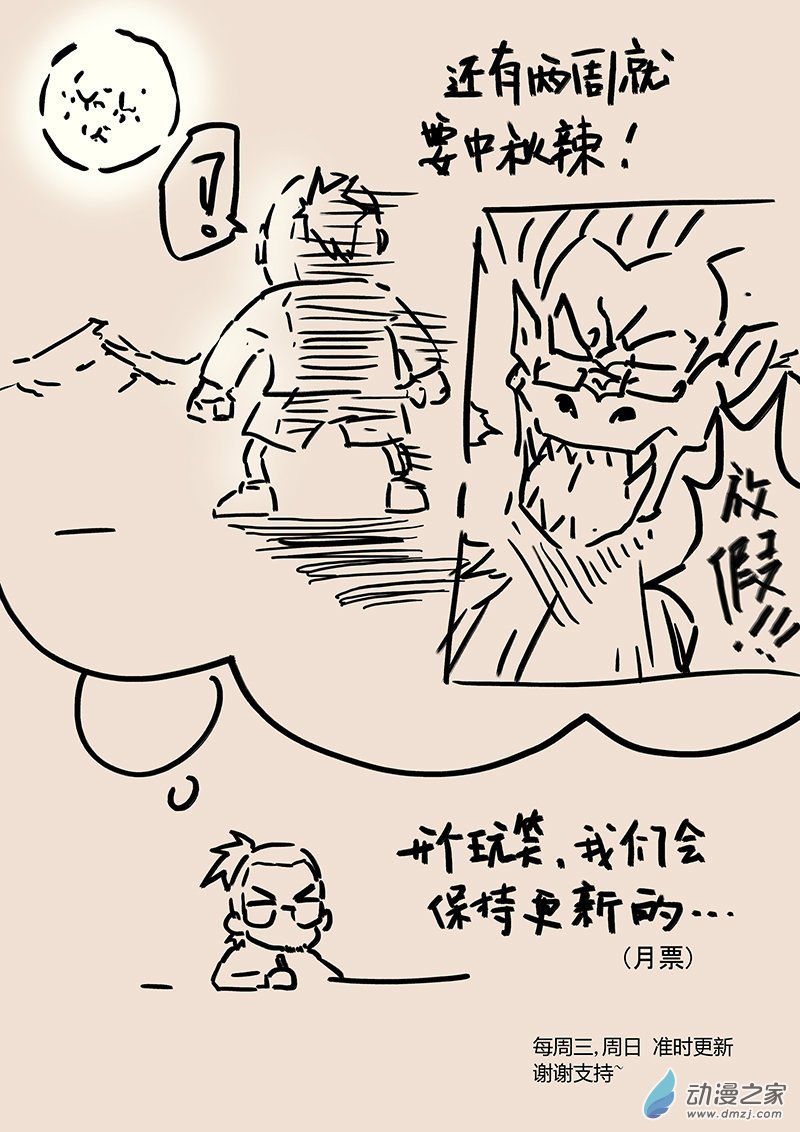 还有两周就
要中秋辣！
！
放
假!!!
开个玩笑、我们会
保持更新的…
（月票）
每周三,周日 准时更新
谢谢支持~
动漫之家
www.dmzj.com